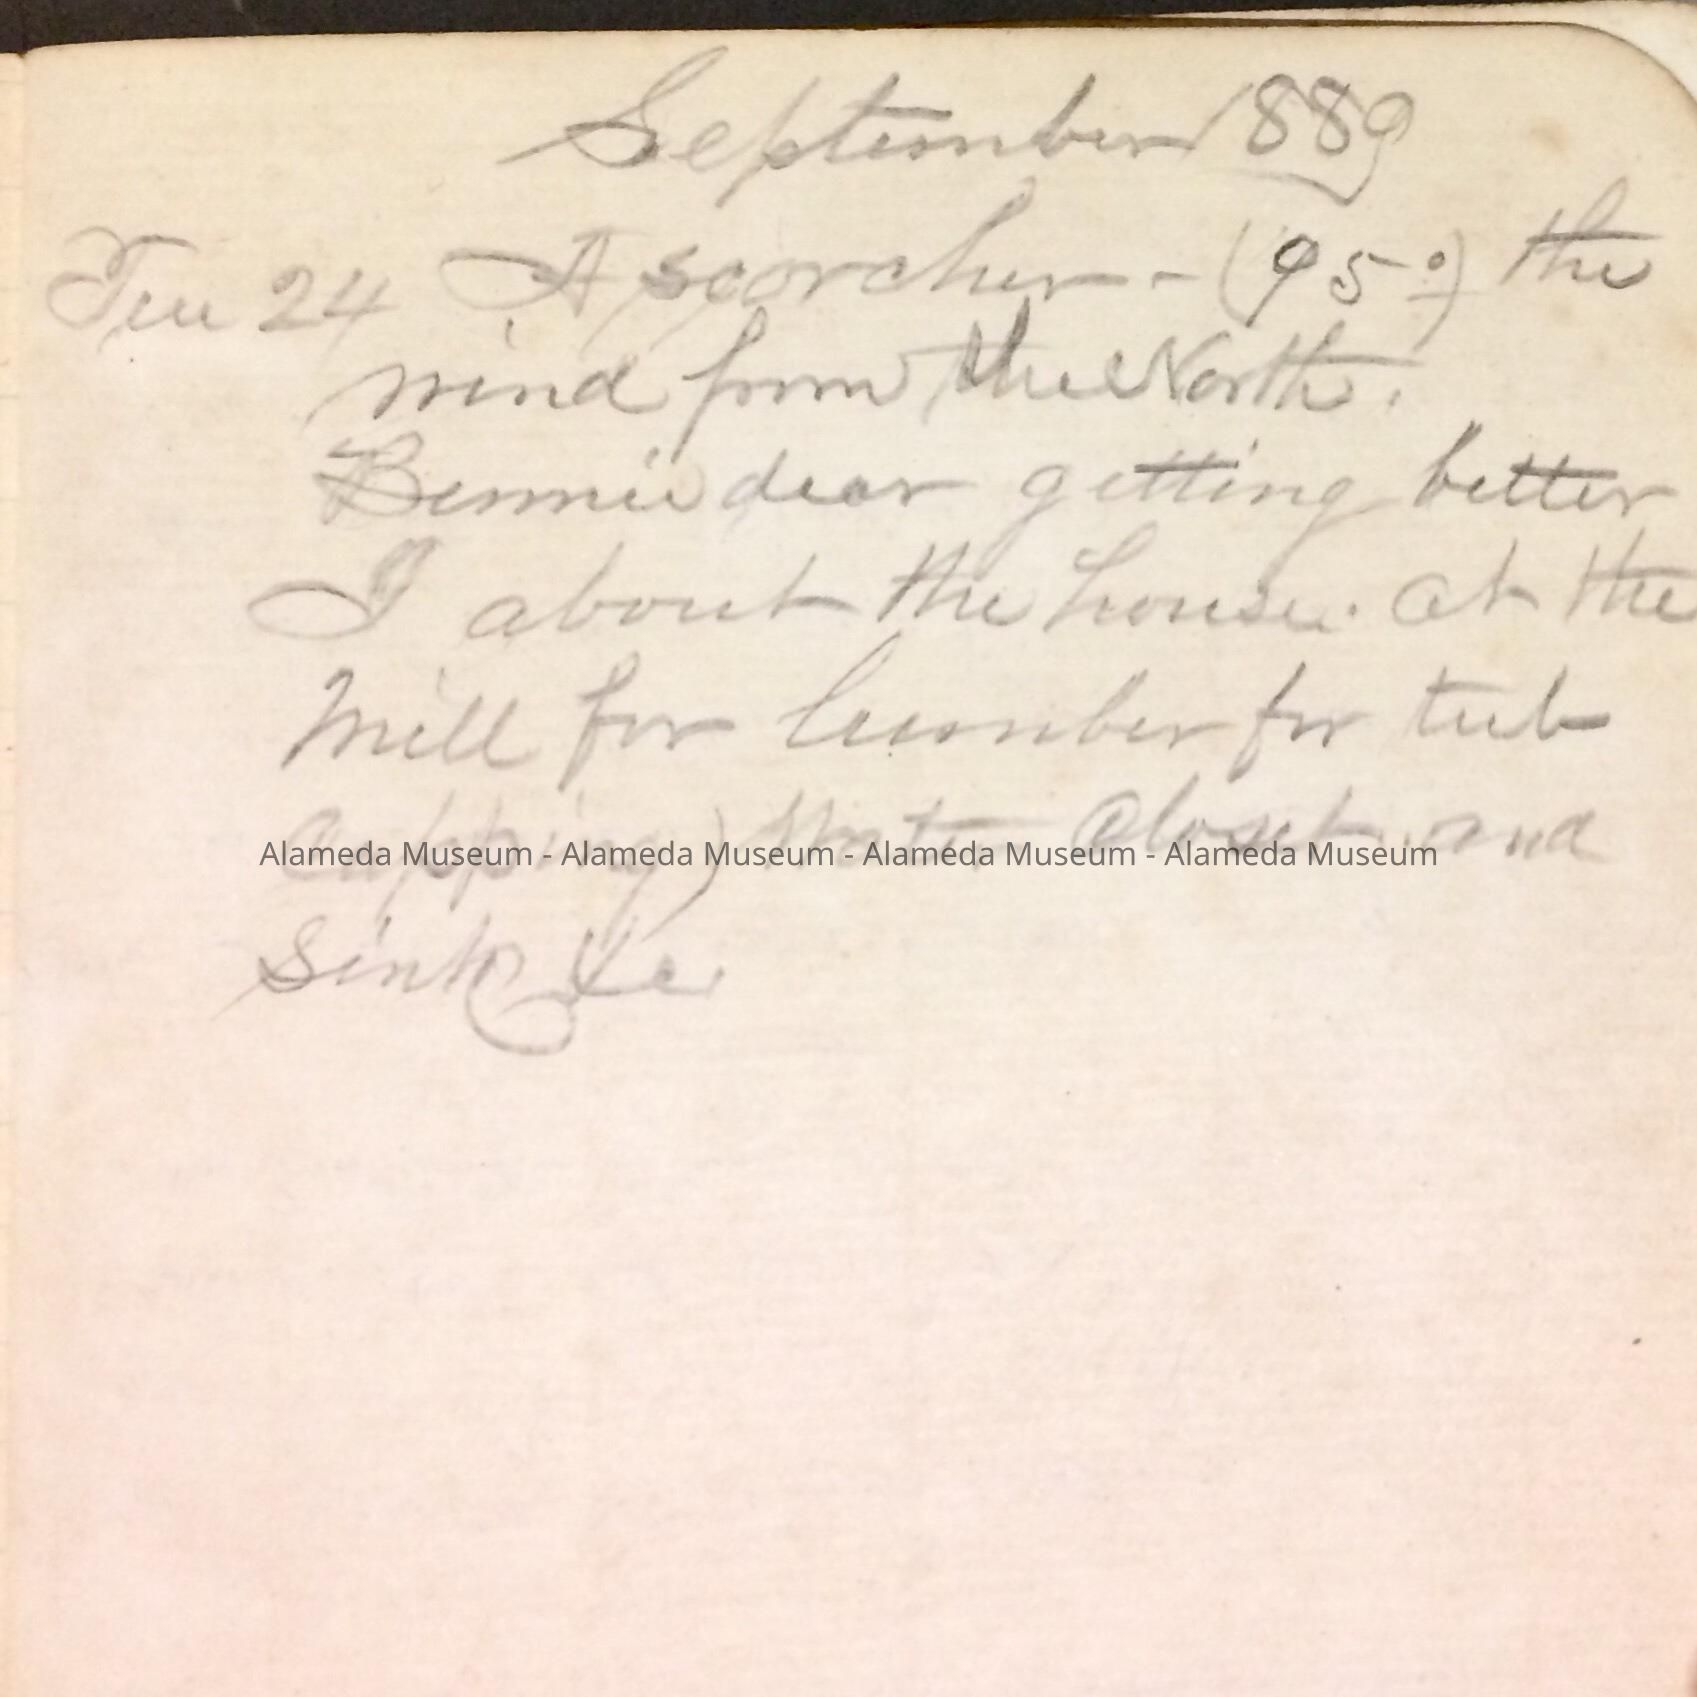 September 1889
Tue 24 A scorcher - (95°) the
wind from the North.
Bennie dear getting better
I about the house. at the
Mill for lumber for tub
Capping, Water Closet and
Alameda Museum - Alameda Museum - Alameda Museum - Alameda Museum
Sink &c.